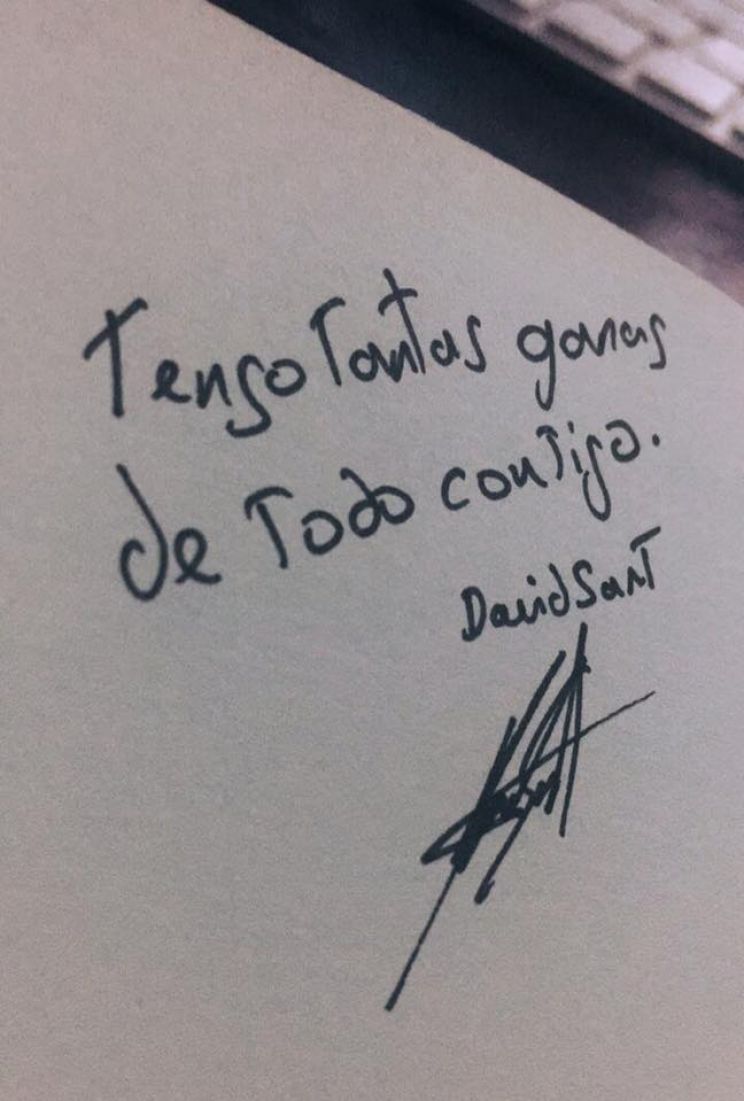 Tengo Tantas ganas
de Todo contigo.
David Sant